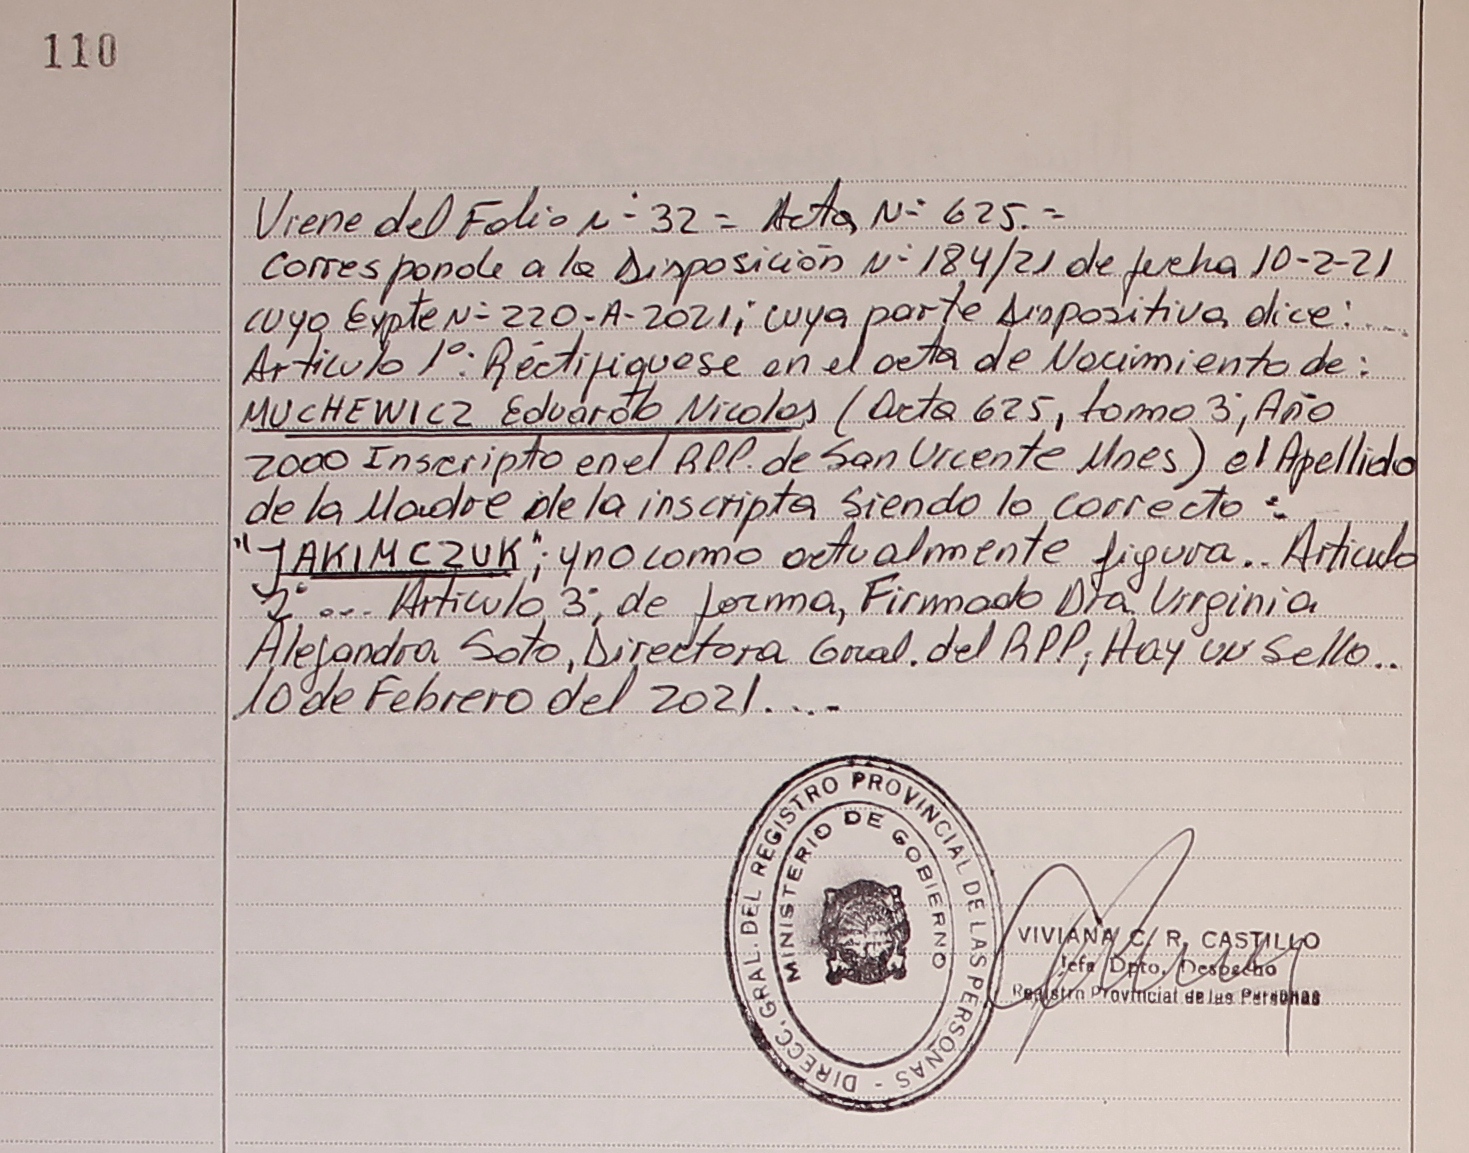 110
Viene del Folio N° 32 = Acta N° 625.=
Corresponde a la Disposición N° 184/21 de fecha 10-2-21
cuyo Expte N° 220-A-2021; cuya parte Dispositiva dice:....
Artículo 1°: Réctifiquese en el acta de Nacimiento de:
MUCHEWICZ Eduardo Nicolas (Acta 625, tomo 3°, Año
2000 Inscripto en el RPP. de San Vicente Mnes) el Apellido
de la Madre de la inscripta siendo lo correcto:
"JAKIMCZUK"; y no como actualmente figura... Articulo
2°... Articulo 3°, de forma, Firmado Dra Virginia
Alejandra Soto, Directora Gral. del RPP; Hay un Sello..
10 de Febrero del 2021....-
DIRECC. GRAL. DEL REGISTRO PROVINCIAL DE LAS PERSONAS -
MINISTERIO DE GOBIERNO
VIVIANA C. R. CASTILLO
Jefa Dpto. Despacho
Registro Provincial de las Personas